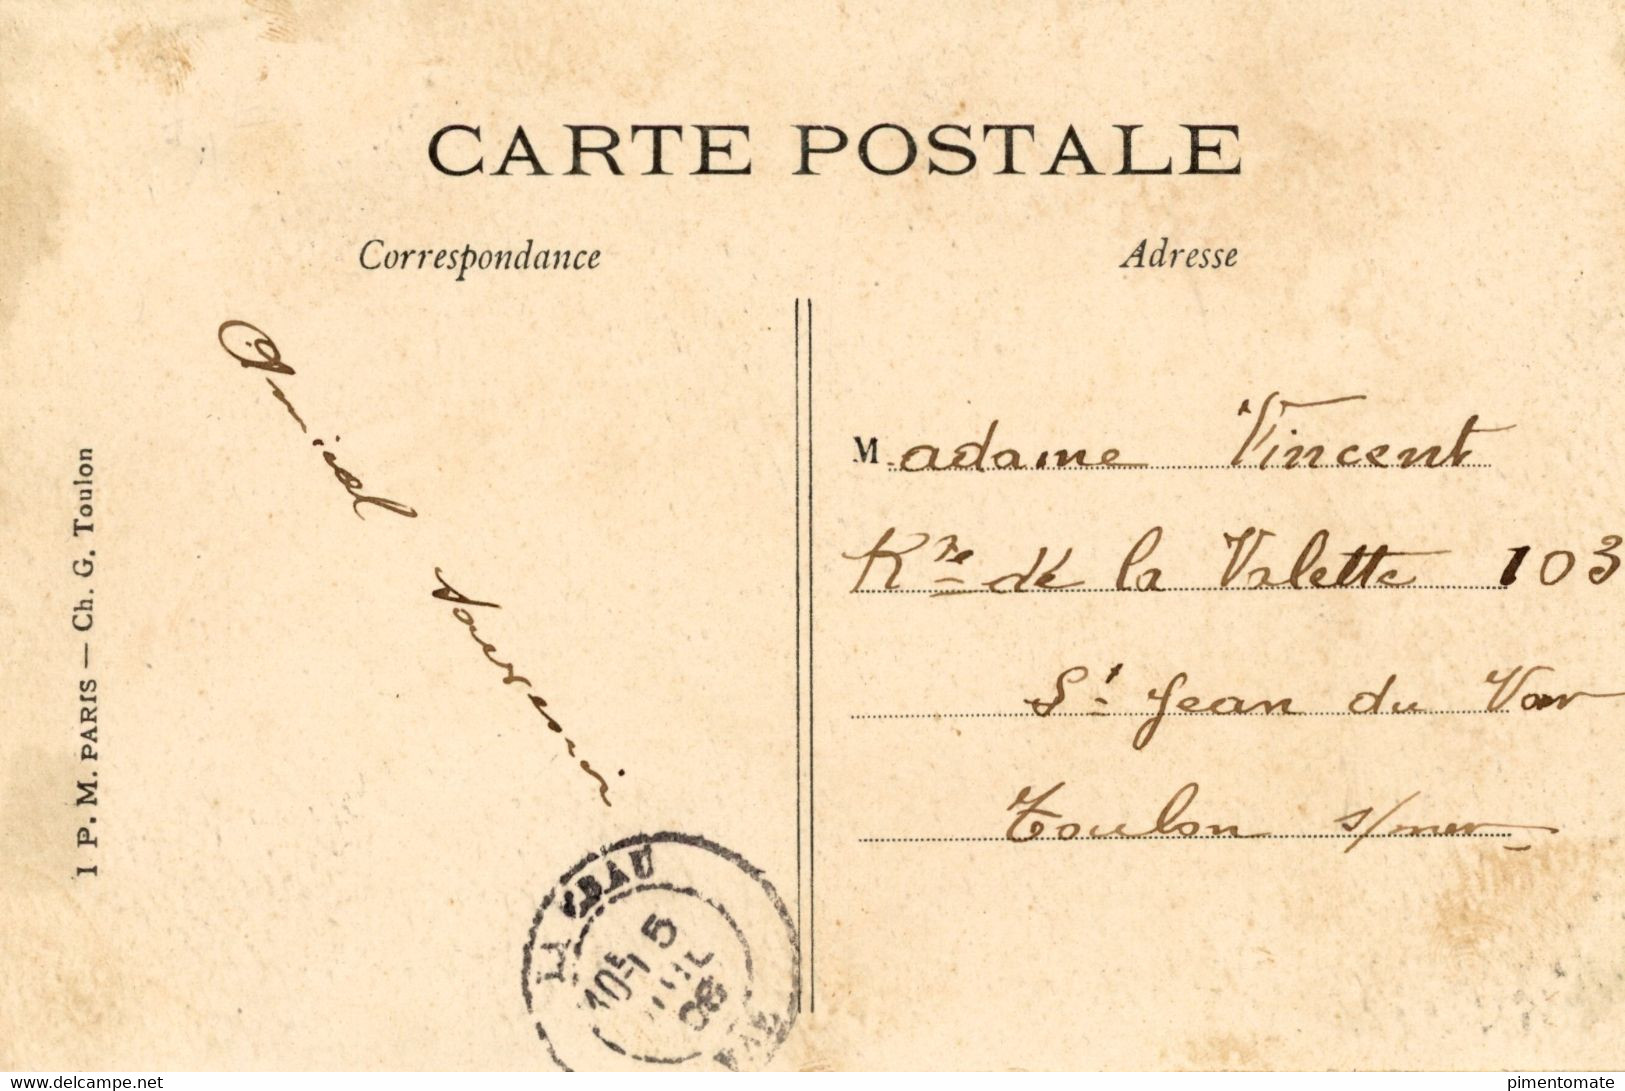 CARTE POSTALE
Correspondance
Adresse
Amical souvenir
Madame Vincent
Rte de la Valette 103
St Jean du Var
Toulon s/mer
1 P. M. PARIS — Ch. G. Toulon
LA CRAU
10 5
JUIL
08
VAR
www.delcampe.net
pimentomate